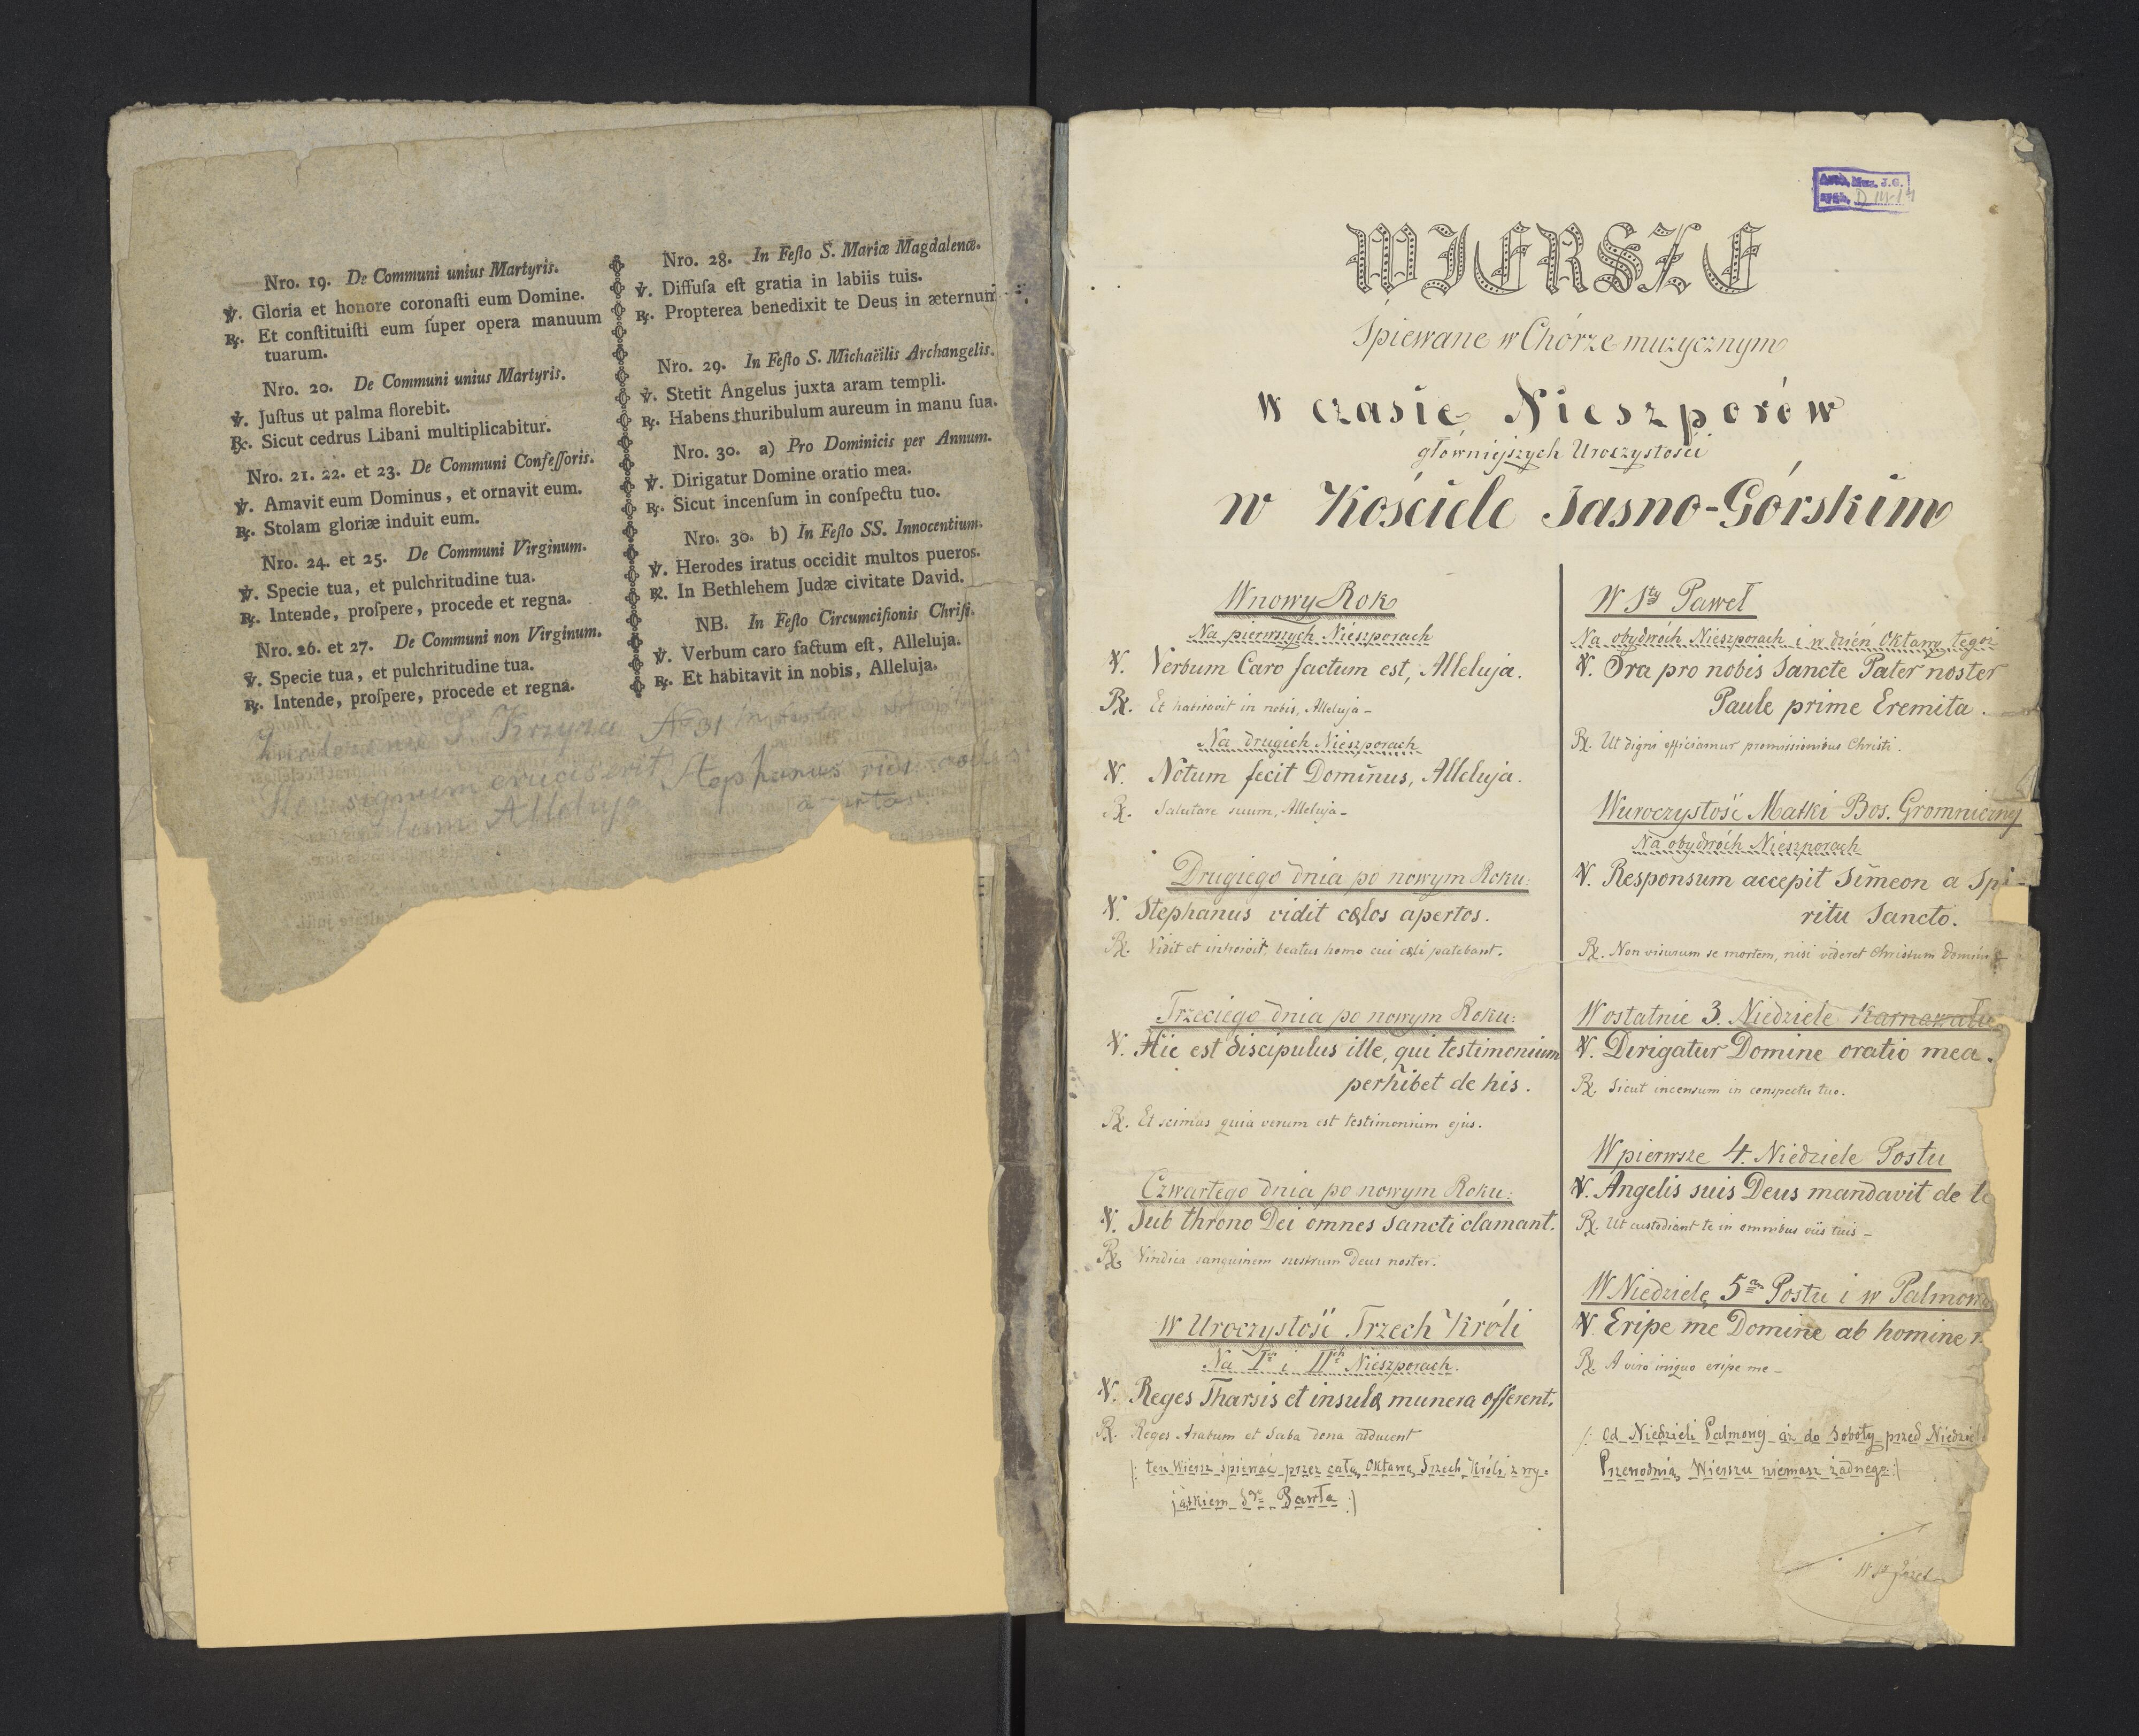 Nro. 19. De Communi unius Martyris.
℣. Gloria et honore coronaſti eum Domine.
℟. Et conſtituiſti eum ſuper opera manuum
tuarum.
Nro. 20. De Communi unius Martyris.
℣. Juſtus ut palma florebit.
℟. Sicut cedrus Libani multiplicabitur.
Nro. 21. 22. et 23. De Communi Confeſſoris.
℣. Amavit eum Dominus, et ornavit eum.
℟. Stolam gloriæ induit eum.
Nro. 24. et 25. De Communi Virginum.
℣. Specie tua, et pulchritudine tua.
℟. Intende, proſpere, procede et regna.
Nro. 26. et 27. De Communi non Virginum.
℣. Specie tua, et pulchritudine tua.
℟. Intende, proſpere, procede et regna.
Nro. 28. In Feſto S. Mariæ Magdalenæ.
℣. Diffuſa eſt gratia in labiis tuis.
℟. Propterea benedixit te Deus in æternum
Nro. 29. In Feſto S. Michaëilis Archangelis.
℣. Stetit Angelus juxta aram templi.
℟. Habens thuribulum aureum in manu ſua.
Nro. 30. a) Pro Dominicis per Annum.
℣. Dirigatur Domine oratio mea.
℟. Sicut incenſum in conſpectu tuo.
Nro. 30. b) In Feſto SS. Innocentium.
℣. Herodes iratus occidit multos pueros.
℟. In Bethlehem Judæ civitate David.
NB. In Feſto Circumciſionis Chriſti.
℣. Verbum caro factum eſt, Alleluja.
℟. Et habitavit in nobis, Alleluja.
S Krzyza No 31
Hoc signum crucis erit Stephanus
Alleluja
Arch. Muz. J.G.
sygn. D III-14
WIERSZE
Śpiewane w Chórze muzycznym
w czasie Nieszporów
główniejszych Uroczystości
w Kościele Jasno-Górskim
W nowy Rok
Na pierwszych Nieszporach
℣. Verbum Caro factum est, Alleluja.
℟. Et habitavit in nobis, Alleluja -
Na drugich Nieszporach
℣. Notum fecit Dominus, Alleluja.
℟. Salutare suum, Alleluja -
Drugiego dnia po nowym Roku:
℣. Stephanus vidit cælos apertos.
℟. Vidit et introivit, beatus homo cui cæli patebant.
Trzeciego dnia po nowym Roku:
℣. Hic est discipulus ille, qui testimonium
perhibet de his.
℟. Et scimus quia verum est testimonium ejus.
Czwartego dnia po nowym Roku:
℣. Sub throno Dei omnes sancti clamant.
℟. Vindica sanguinem nostrum Deus noster.
W Uroczystość Trzech Króli
Na I. i II. Nieszporach.
℣. Reges Tharsis et insulæ munera offerent.
℟. Reges Arabum et Saba dona adducent
/: ten Wiersz śpiewać przez całą Oktawę Trzech Króli z wy=
jątkiem Sgo Pawła :/
W Sty Paweł
Na obydwóch Nieszporach i w dzień Oktawy tegoż
℣. Ora pro nobis Sancte Pater noster
Paule prime Eremita.
℟. Ut digni efficiamur promissionibus Christi.
W uroczystość Matki Bos. Gromniczny
Na obydwóch Nieszporach
℣. Responsum accepit Simeon a Spi-
ritu Sancto.
℟. Non visurum se mortem, nisi videret Christum Domini
W ostatnie 3. Niedziele Karnawału
℣. Dirigatur Domine oratio mea.
℟. Sicut incensum in conspectu tuo.
W pierwsze 4. Niedziele Postu
℣. Angelis suis Deus mandavit de te
℟. Ut custodiant te in omnibus viis tuis -
W Niedzielę 5tą Postu i w Palmową
℣. Eripe me Domine ab homine
℟. A viro iniquo eripe me -
/: Od Niedzieli Palmowej aż do Soboty przed Niedziel
Przewodnią Wierszu niemasz żadnego :/
W Sty Józef